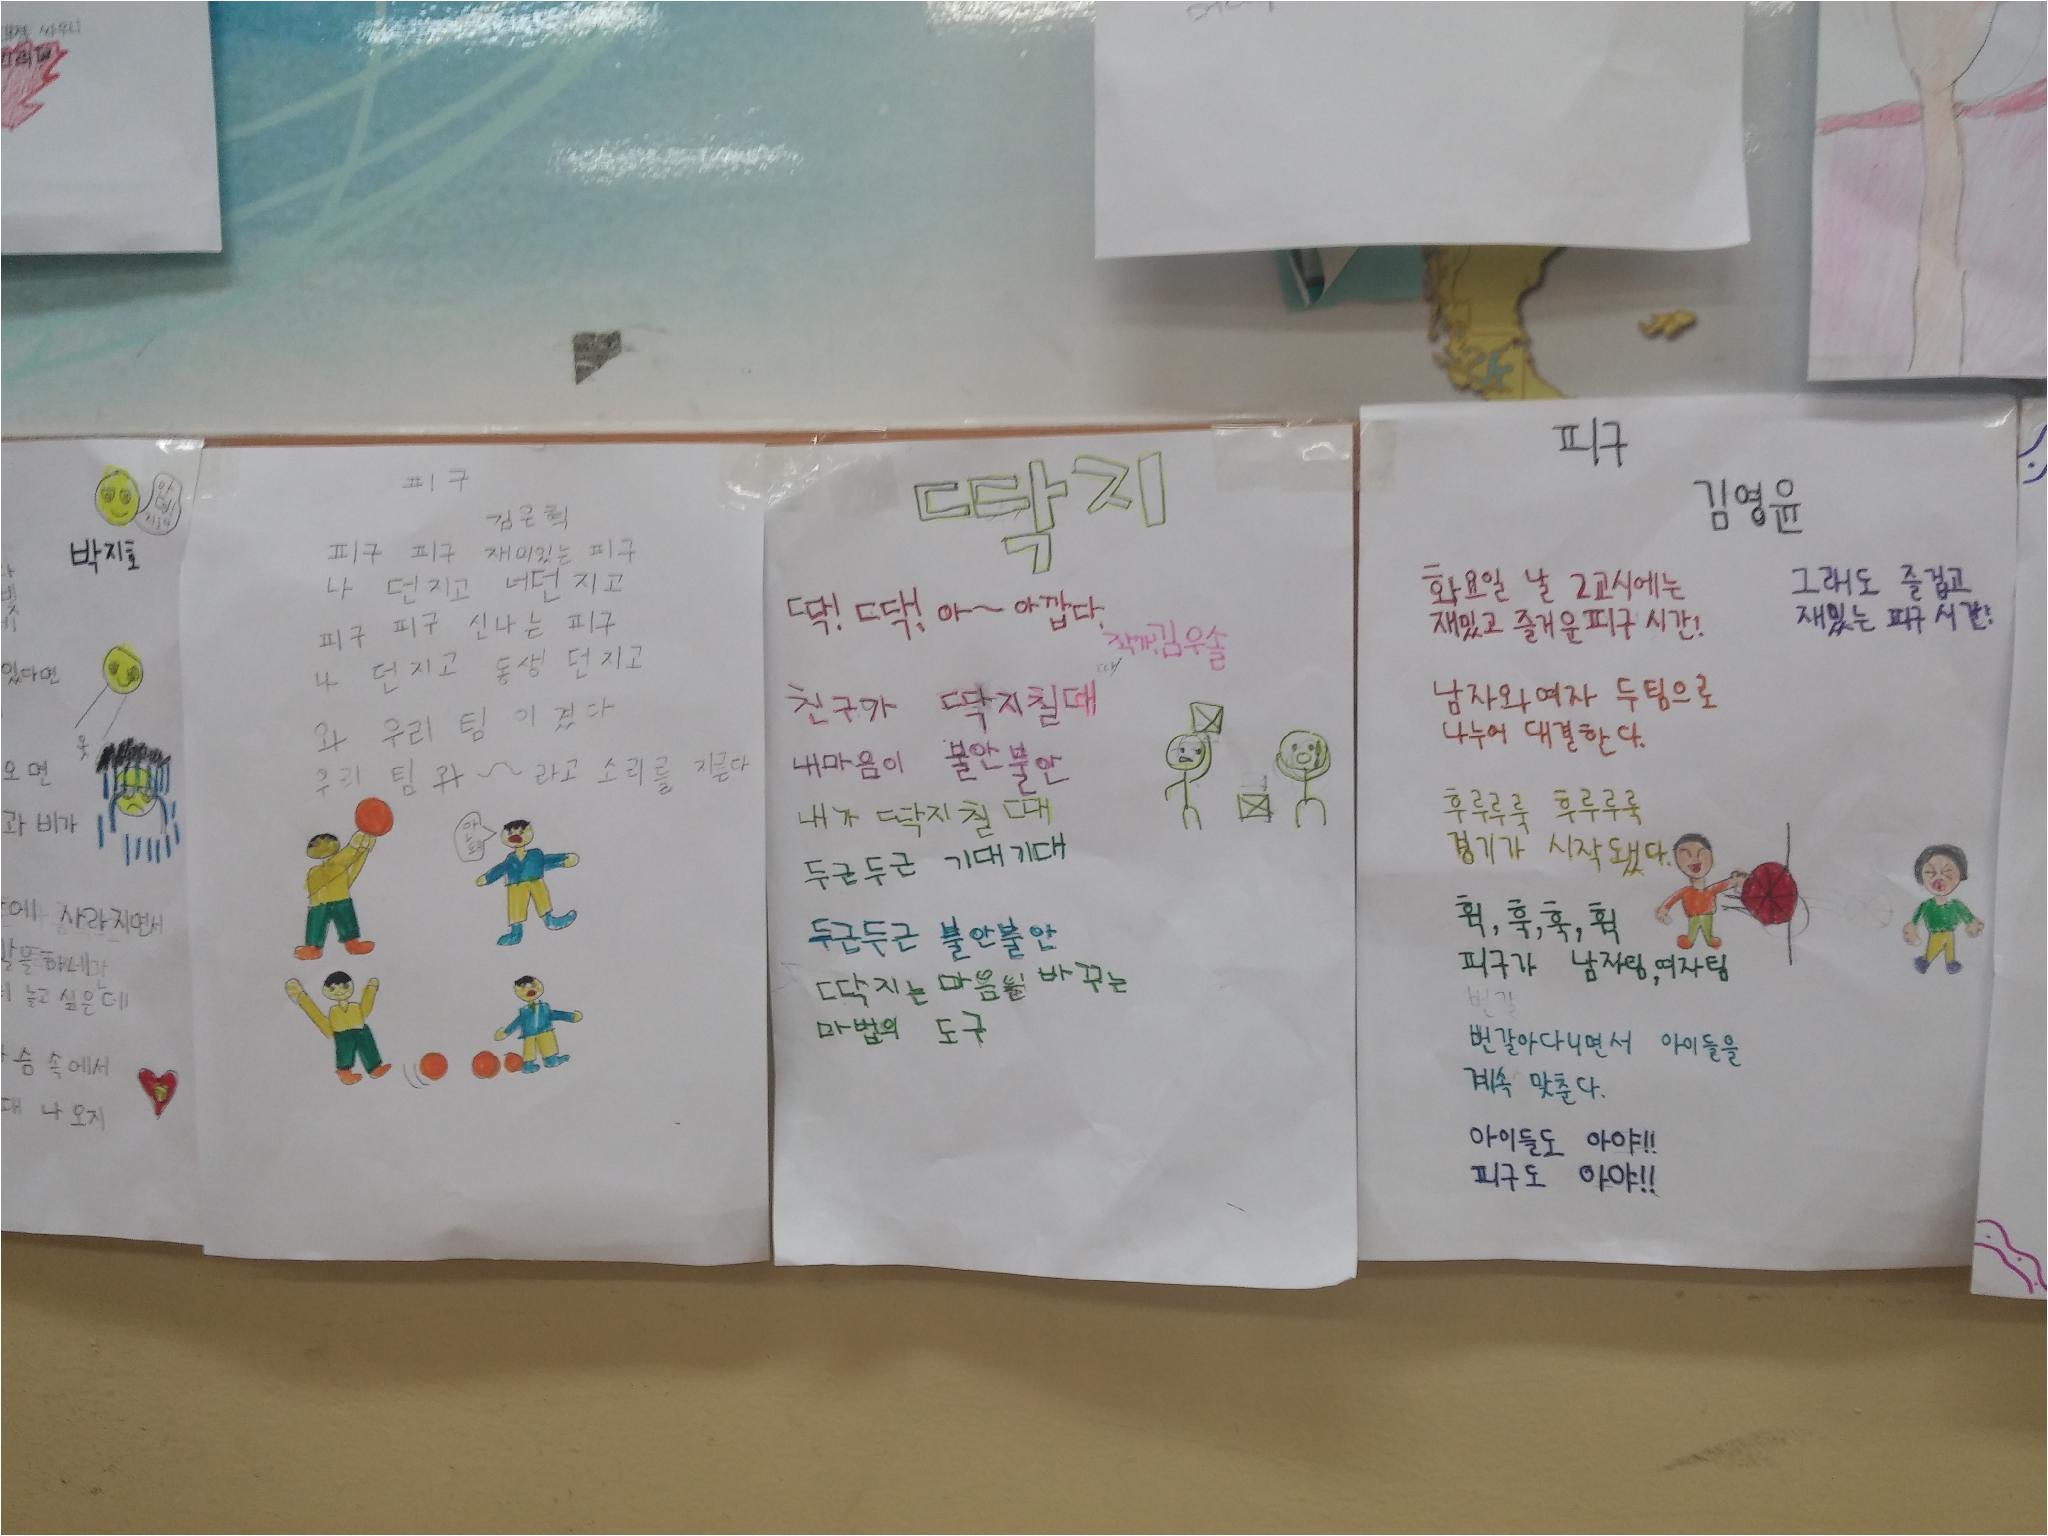 박지호
있다면
오면
과 비가
사라지면서
놀고 싶은데
숨 속에서
나오지
피구
김은혁
피구 피구 재미있는 피구
나 던지고 너던지고
피구 피구 신나는 피구
나 던지고 동생 던지고
와 우리 팀 이겼다
우리 팀 와~~ 라고 소리를 지른다
딱지
딱! 딱! 아~ 아깝다.
작가:김우솔
친구가 딱지칠때
내마음이 불안불안
내가 딱지칠 때
두근두근 기대기대
두근두근 불안불안
딱지는 마음을 바꾸는
마법의 도구
피구
김영윤
화요일 날 2교시에는
재밌고 즐거운피구 시간!
남자와여자 두팀으로
나누어 대결한다.
후루루룩 후루루룩
경기가 시작됐다.
휙, 훅, 훅, 휙
피구가 남자팀,여자팀
번갈
번갈아다니면서 아이들을
계속 맞춘다.
아이들도 아야!!
피구도 아야!!
그래도 즐겁고
재밌는 피구 시간!